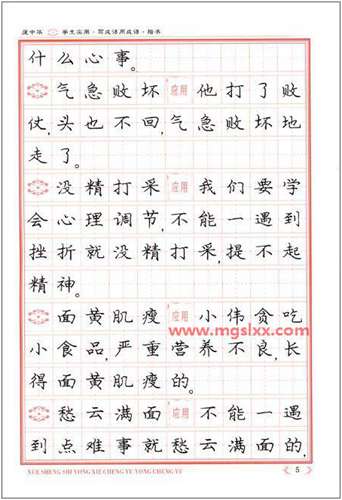 庞中华 学生实用·写成语用成语·楷书
什么心事。
气急败坏 应用 他打了败
仗,头也不回,气急败坏地
走了。
没精打采 应用 我们要学
会心理调节,不能一遇到
挫折就没精打采,提不起
精神。
面黄肌瘦 应用 小伟贪吃
www.mgslxx.com
小食品,严重营养不良,长
得面黄肌瘦的。
愁云满面 应用 不能一遇
到点难事就愁云满面的,
XUE SHENG SHI YONG XIE CHENG YU YONG CHENG YU
5